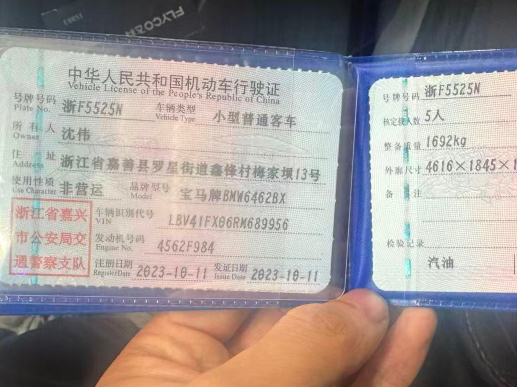 FLYCO
中华人民共和国机动车行驶证
Vehicle License of the People's Republic of China
号牌号码 浙F5525N 车辆类型 小型普通客车
Plate No. Vehicle Type
所有人 沈伟
Owner
住址 浙江省嘉善县罗星街道鑫锋村梅家坝13号
Address
使用性质 非营运 品牌型号 宝马牌BMW6462BX
Use Character Model
浙江省嘉兴
市公安局交
通警察支队
车辆识别代号 LBV41FX06RM689956
VIN
发动机号码 4562F984
Engine No.
注册日期 2023-10-11 发证日期 2023-10-11
Register Date Issue Date
号牌号码 浙F5525N
核定载人数 5人
整备质量 1692kg
外廓尺寸 4616×1845×1
备注
检验记录
汽油